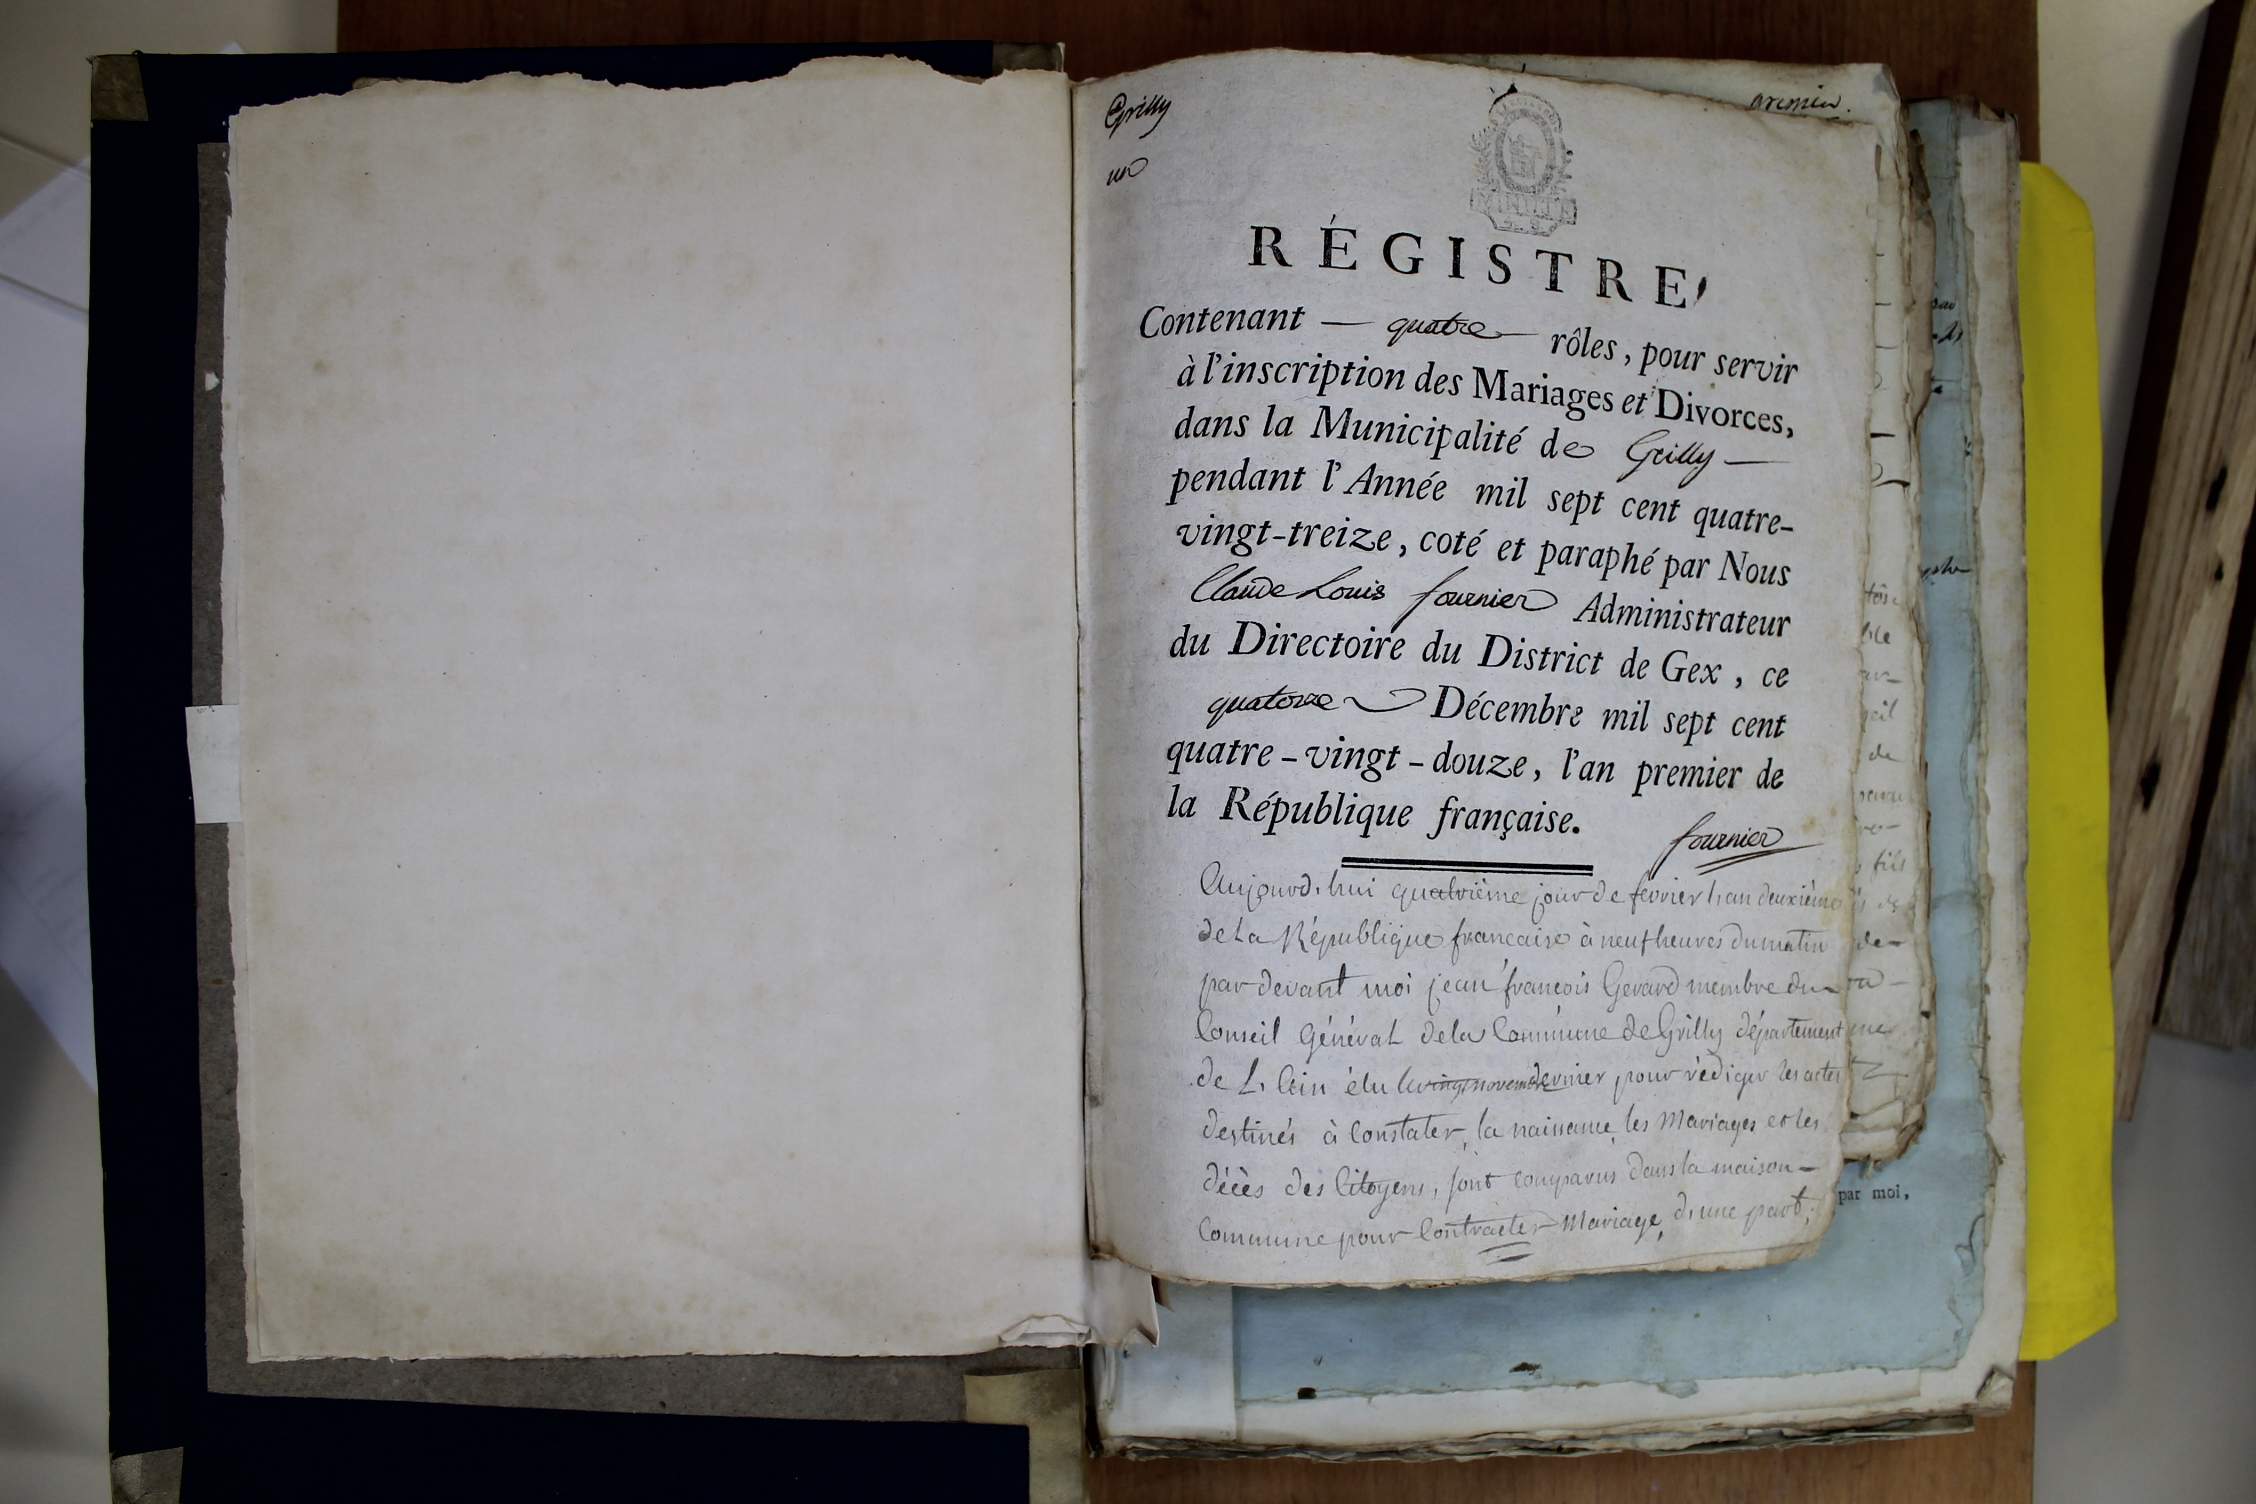 Grilly
un
RÉGISTRE
Contenant — quatre — rôles, pour servir
à l'inscription des Mariages et Divorces,
dans la Municipalité de Grilly —
pendant l'Année mil sept cent quatre-
vingt-treize, coté et paraphé par Nous
Claude Louis fournier Administrateur
du Directoire du District de Gex, ce
quatorze Décembre mil sept cent
quatre-vingt-douze, l'an premier de
la République française.
fournier
Aujourd'hui quatrième jour de fevrier l'an deuxième
de La République francaise à neuf heures du matin
par devant moi jean françois Gerard membre du
Conseil Général de la Commune de Grilly département
de L'Ain élu le vingt novembre dernier pour rédiger les actes
destinés à Constater, la naissance, les Mariages et les
décès des Citoyens, sont comparus dans la maison-
Commune pour Contracter Mariage, d'une part,
par moi,